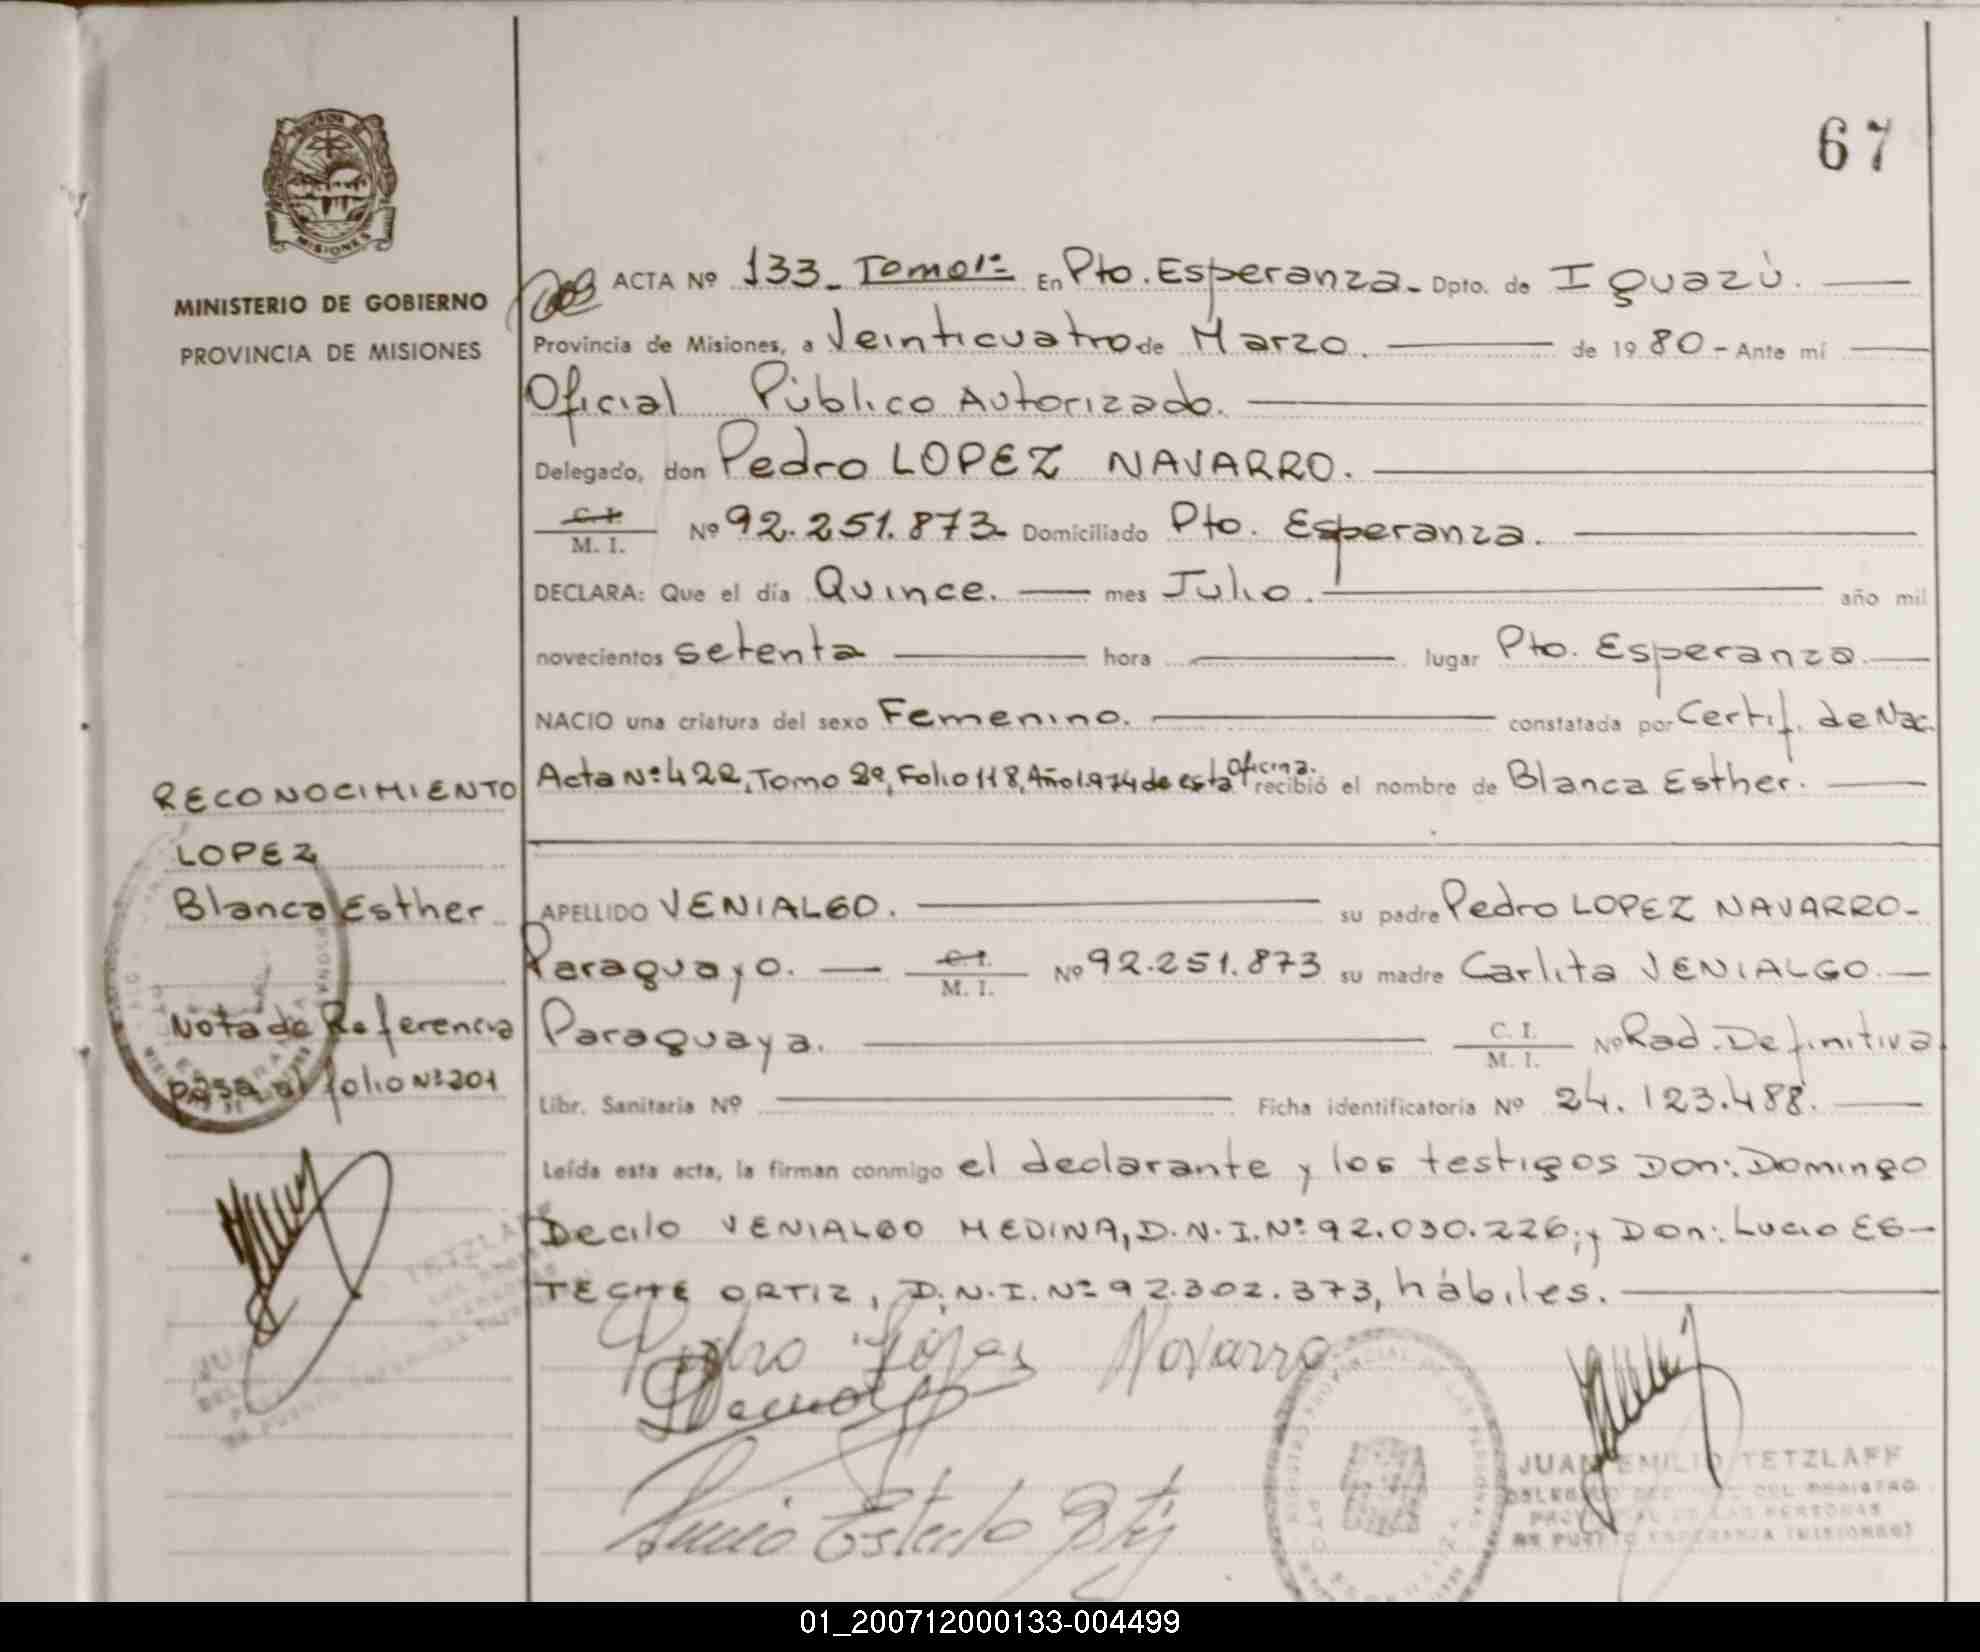 67
MISIONES
MINISTERIO DE GOBIERNO
PROVINCIA DE MISIONES
ACTA Nº 133_ Tomo 1º En Pto. Esperanza_ Dpto. de Iguazú.
Provincia de Misiones, a Veinticuatro de Marzo. de 19 80 - Ante mí
Oficial Público Autorizado.
Delegado, don Pedro LOPEZ NAVARRO.
C. I.
M. I. Nº 92.251.873- Domiciliado Pto. Esperanza.
DECLARA: Que el día Quince. mes Julio. año mil
novecientos setenta hora lugar Pto. Esperanza.
NACIO una criatura del sexo Femenino. constatada por Certif. de Nac.
Acta Nº 422, Tomo 2º, Folio 118, Año 1.974 de esta Oficina. recibió el nombre de Blanca Esther.
APELLIDO VENIALGO. su padre Pedro LOPEZ NAVARRO-
Paraguayo. C. I.
M. I. Nº 92.251.873 su madre Carlita VENIALGO.
Paraguaya. C. I.
M. I. Nº Rad. Definitiva
Libr. Sanitaria Nº Ficha identificatoria Nº 24.123.488.
Leída esta acta, la firman conmigo el declarante y los testigos Don: Domingo
Decilo VENIALGO MEDINA, D.N.I. Nº 92.030.226; y Don: Lucio ES-
TECHE ORTIZ, D.N.I. Nº 92.302.373, hábiles.
RECONOCIMIENTO
LOPEZ
Blanca Esther
Nota de Referencia
pasa al folio Nº 201
Pedro López Navarro
JUAN EMILIO TETZLAFF
DEL REGISTRO
PROVINCIAL DE LAS PERSONAS
DE PUERTO ESPERANZA (MISIONES)
TETZLAFF
01_200712000133-004499